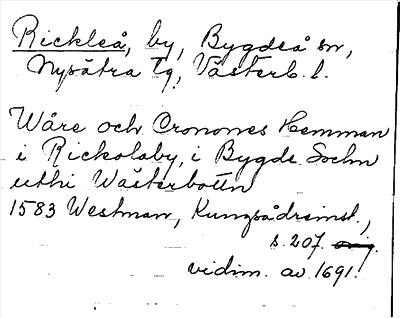 Rickleå, by, Bygdeå sn,
Nysätra tg, Västerb. l.
Wåre och Cronones Hemman
i Rickolaby, i Bygde Sochn
uthi Wästerbottn
1583 Westman, Kungsådreinst.,
s. 207. orig.
vidim. av 1691.